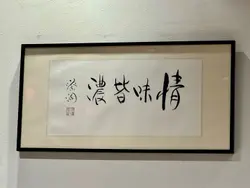 情味皆濃